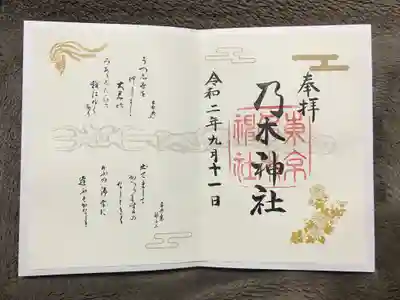 奉拝
東京
乃木神社
令和二年九月十一日
うつし世を
大君の
みあとしたひて
我はゆくなり
出てまして
かへります日の
なしときく
けふの御幸に
逢ふそかなしき